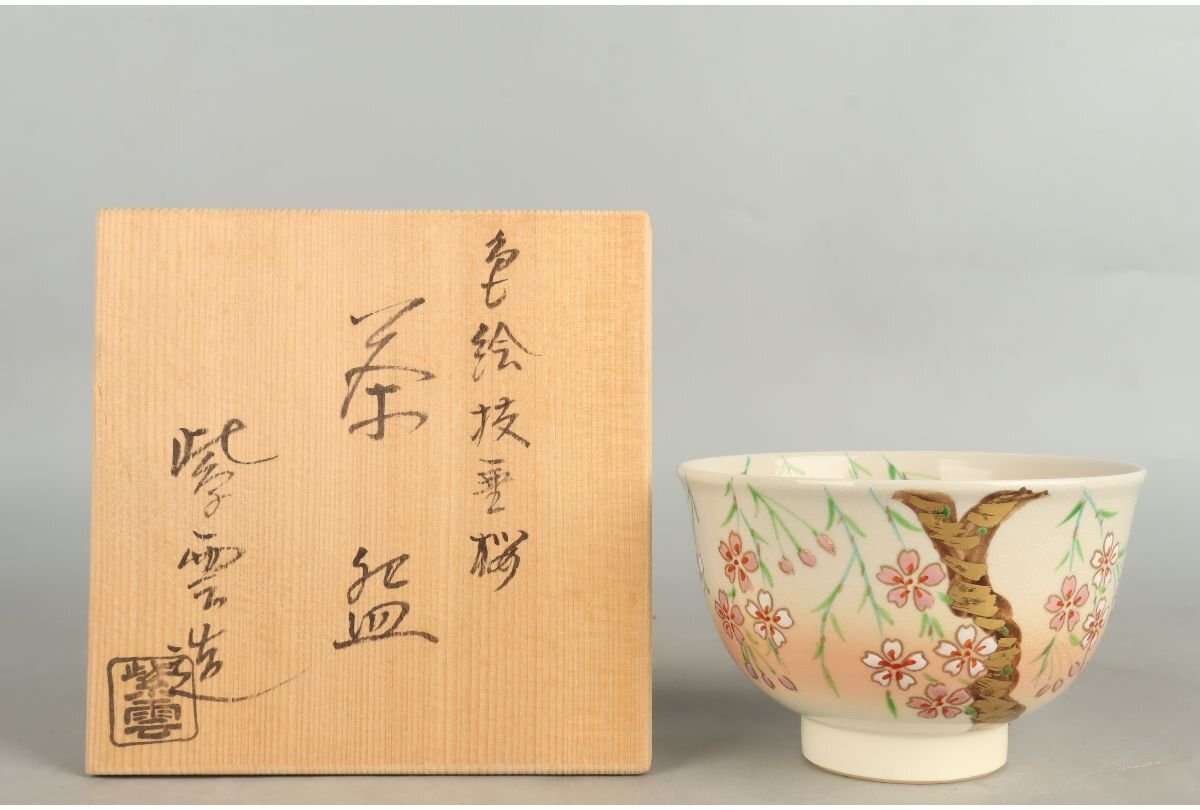 色絵枝垂桜
茶盌
紫雲造
紫雲